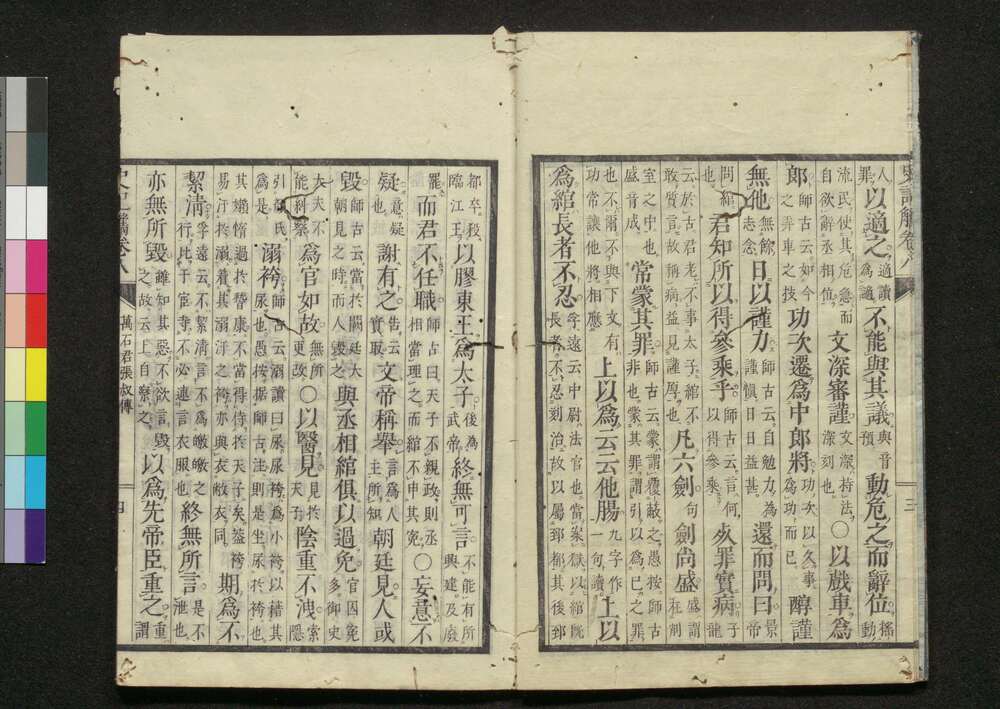 史記觿卷八 三
人罪以適之適讀為適不能與其議與音預動危之而辭位搖動
流民使其危急而自欲辭丞相位文深審謹文深持法深刻也○以戲車為
郎師古云如今之弄車之技功次遷為中郎將功次以久事為功而已醇謹
無他無餘志念日以謹力師古云自勉力為謹愼日日益甚還而問曰景帝
問綰也君知所以得參乘乎師古云言何以得參乘死罪實病子龍
云於古君老不事太子綰不敢質言故稱病益見謹厚也凡六劍句劍尚盛盛謂在削
室之中也盛音成常蒙其罪師古云蒙謂覆蔽之愚按師古非也蒙其罪謂引以為己之罪
也不爾不與下文有功常讓他將相應上以為云云他腸九字作一句讀上以
為綰長者不忍孚遠云中尉法官也當案獄以綰長者不忍刻治故以屬郅都其後郅
都卒殺臨江王以膠東王為太子後為武帝終無可言不能有所興建及廢
罷而君不任職師古曰天子不親政則丞相當理之而綰不申其寃○妄意不
疑意疑也謝有之告云實取文帝稱舉言為人主所知朝廷見人或
毀師古云當於闕廷大朝見之時而人毀之與丞相綰俱以過免官囚寃多御史
大夫不能糾察為官如故無所更改○以醫見見於天子陰重不洩索隱
引顏氏為是溺袴師古云溺讀曰尿尿袴為小袴以藉其尿也愚按據師古注則是坐尿於袴也
其嬾惰過於嵇康不當得侍於天子矣蓋袴易汗於溺着其溺汙之袴亦與衣敝衣同期為不
絜清孚遠云不絜清言不為皦皦之行比于宦寺不必連言衣服也終無所言是不泄也
亦無所毀雖知其惡不欲言毀之故云上自察之以為先帝臣重之重謂
史記觿卷八 萬石君張叔傳 四